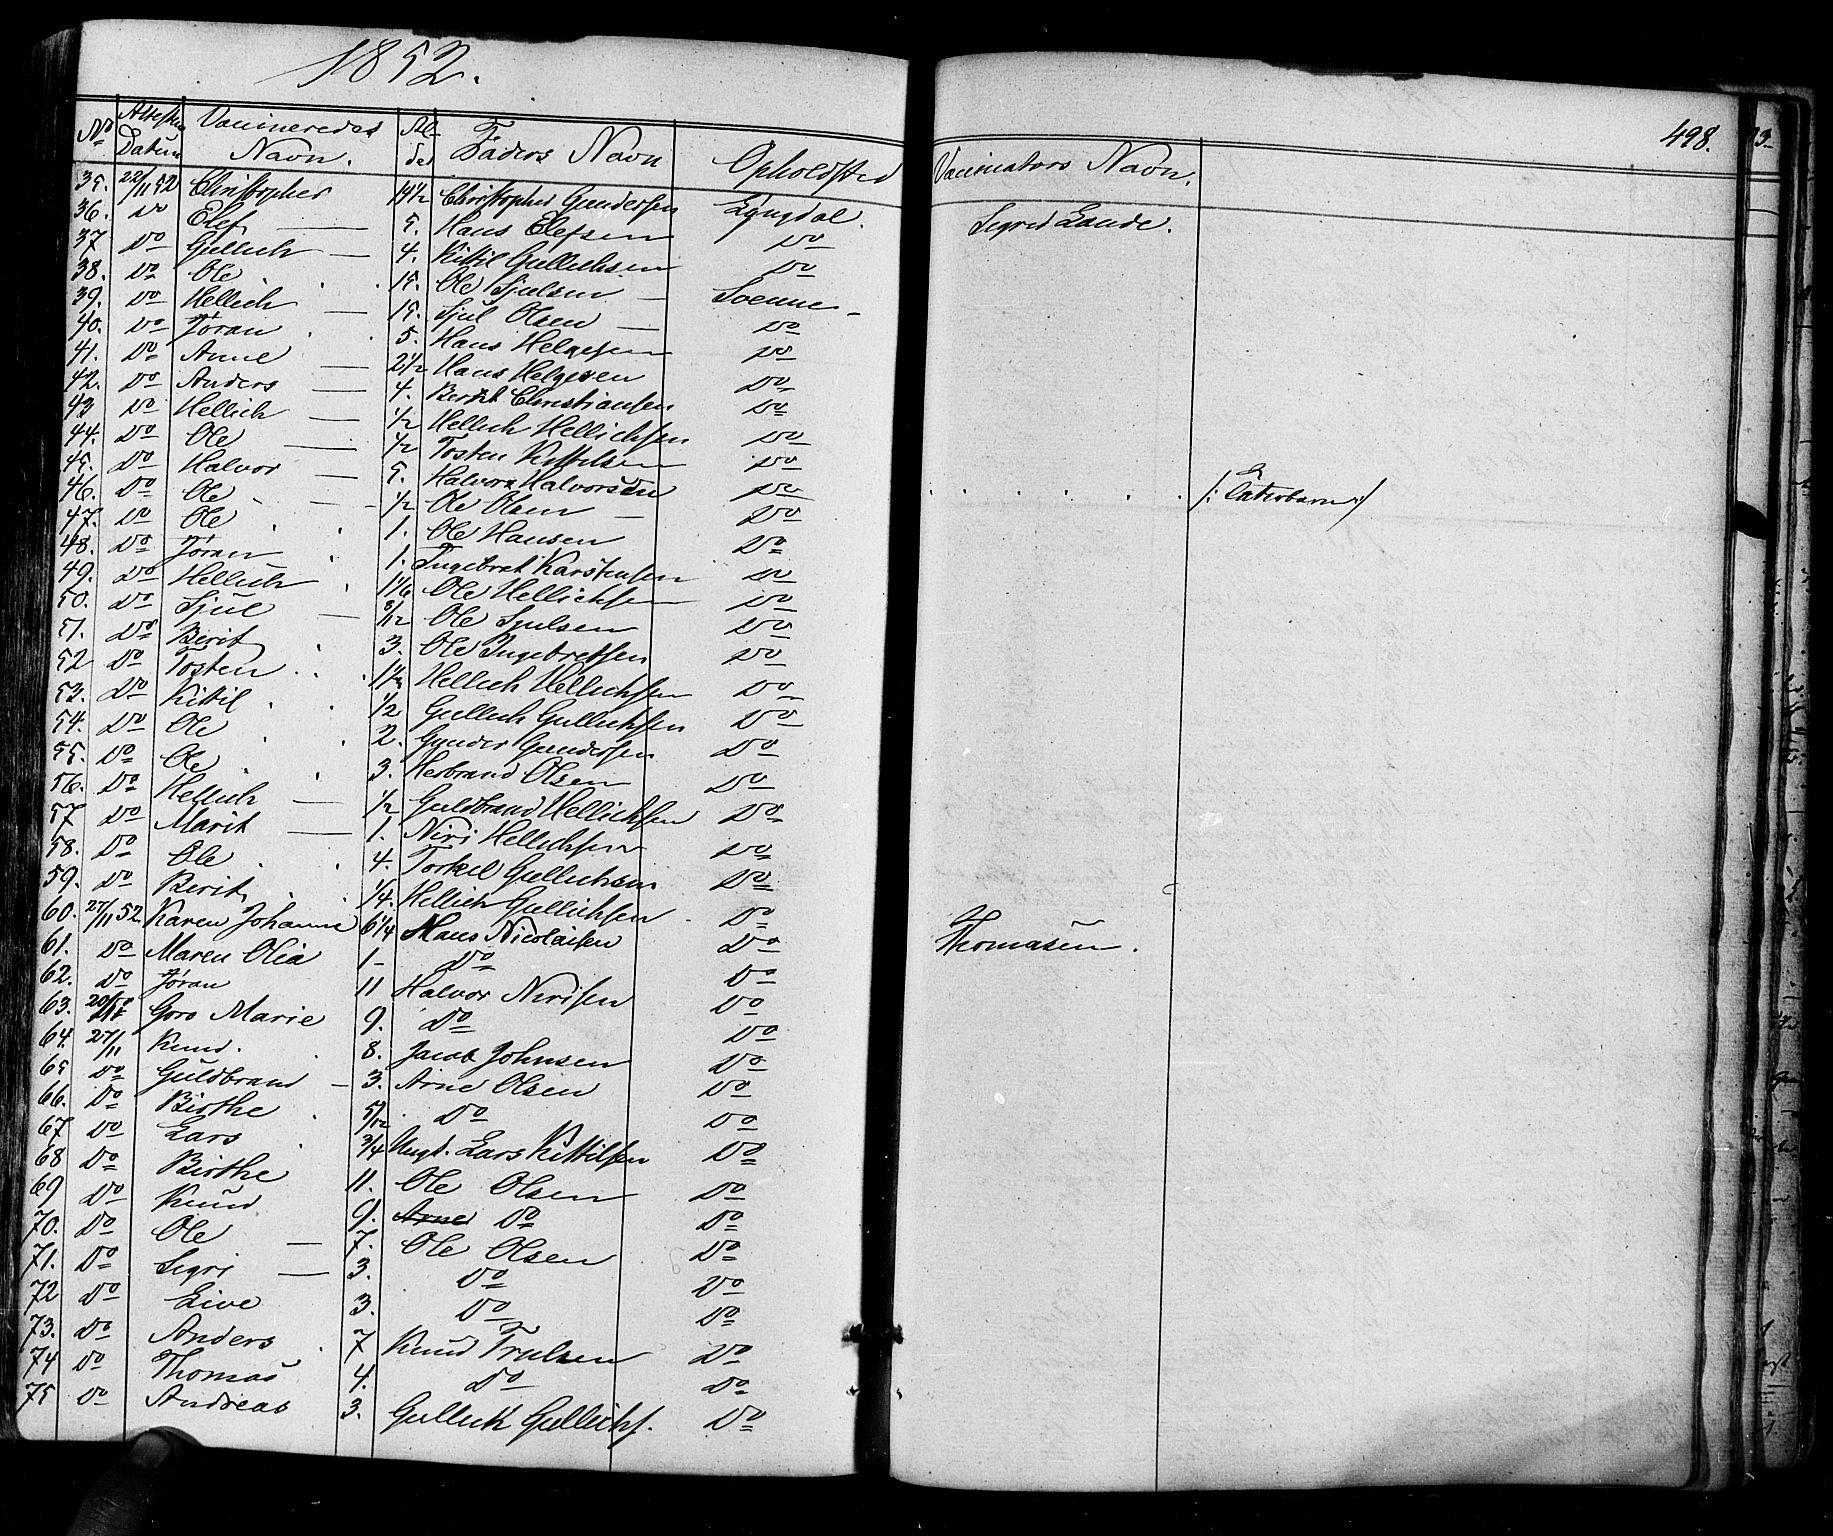 1852.
498.
No Attestens Datum Vaccineredes Navn. Alder Faders Navn Opholdsted Vaccinators Navn.
35. 22/11 52 Christopher 14 1/2 Christopher Gundersen Eqngdal. Sigred Lande.
36. Do Elef 5. Hans Elefsen Do
37. Do Gullich 4. Kittil Gullichsen Do
38. Do Ole 15. Ole Sjulsen Soenne
39. Do Hellich 15. Sjul Olsen Do
40. Do Jøran 5. Hans Helgesen Do
41. Do Anne 2 1/2 Hans Helgesen Do
42. Do Anders 4. Berthel Christiansen Do
43 Do Hellich 1/2 Hellich Hellichsen Do
44. Do Ole 1/2 Tosten Kittilsen Do
45. Do Halvor 5. Halvor Halvorsen Do
46. Do Ole 1/2 Ole Olsen Do /: Taterbarn :/
47. Do Ole 1. Ole Hansen Do
48. Do Jøran 1. Ingebret Karstensen Do
49. Do Hellich 1 1/6 Ole Hellichsen Do
50. Do Sjul 8/12 Ole Sjulsen Do
51. Do Berit 3. Ole Ingebretsen Do
52 Do Tosten Hellich Hellichsen Do
53. Do Kittil 1/2 Gullich Gullichsen Do
54. Do Ole 2. Gunder Gundersen Do
55. Do Ole 3. Herbrand Olsen Do
56. Do Hellich 1/2 Guldbrand Hellichsen Do
57 Do Marit 1. Niri Hellichsen Do
58. Do Ole 4. Torkel Gullichsen Do
59. Do Berit 1/4 Hellich Gullichsen Do
60. 27/11 52 Karen Johanne 6 1/4 Hans Nicolaisen Do Thomasen.
61. Do Maren Olia 1 Do Do
62. Do Jøran 11 Halvor Nirisen Do
63. Goro Marie 9. Do Do
64. 27/11 Knud. 8. Jacob Johnsen Do
65 Do Guldbrand 3. Arne Olsen Do
66. Do Birthe 5/12 Do Do
67 Do Lars 3/4 Ungk. Lars Kittilsen Do
68 Do Birthe 11. Ole Olsen Do
69 Do Knud 9. Arne Do Do
70. Do Ole 7. Ole Olsen Do
71. Do Sigri 3. Do Do
72 Do Live 3. Do Do
73. Do Anders 7 Knud Trulsen Do
74 Do Thomas 4. Do Do
75 Do Andreas 3. Gullick Gullichs. Do